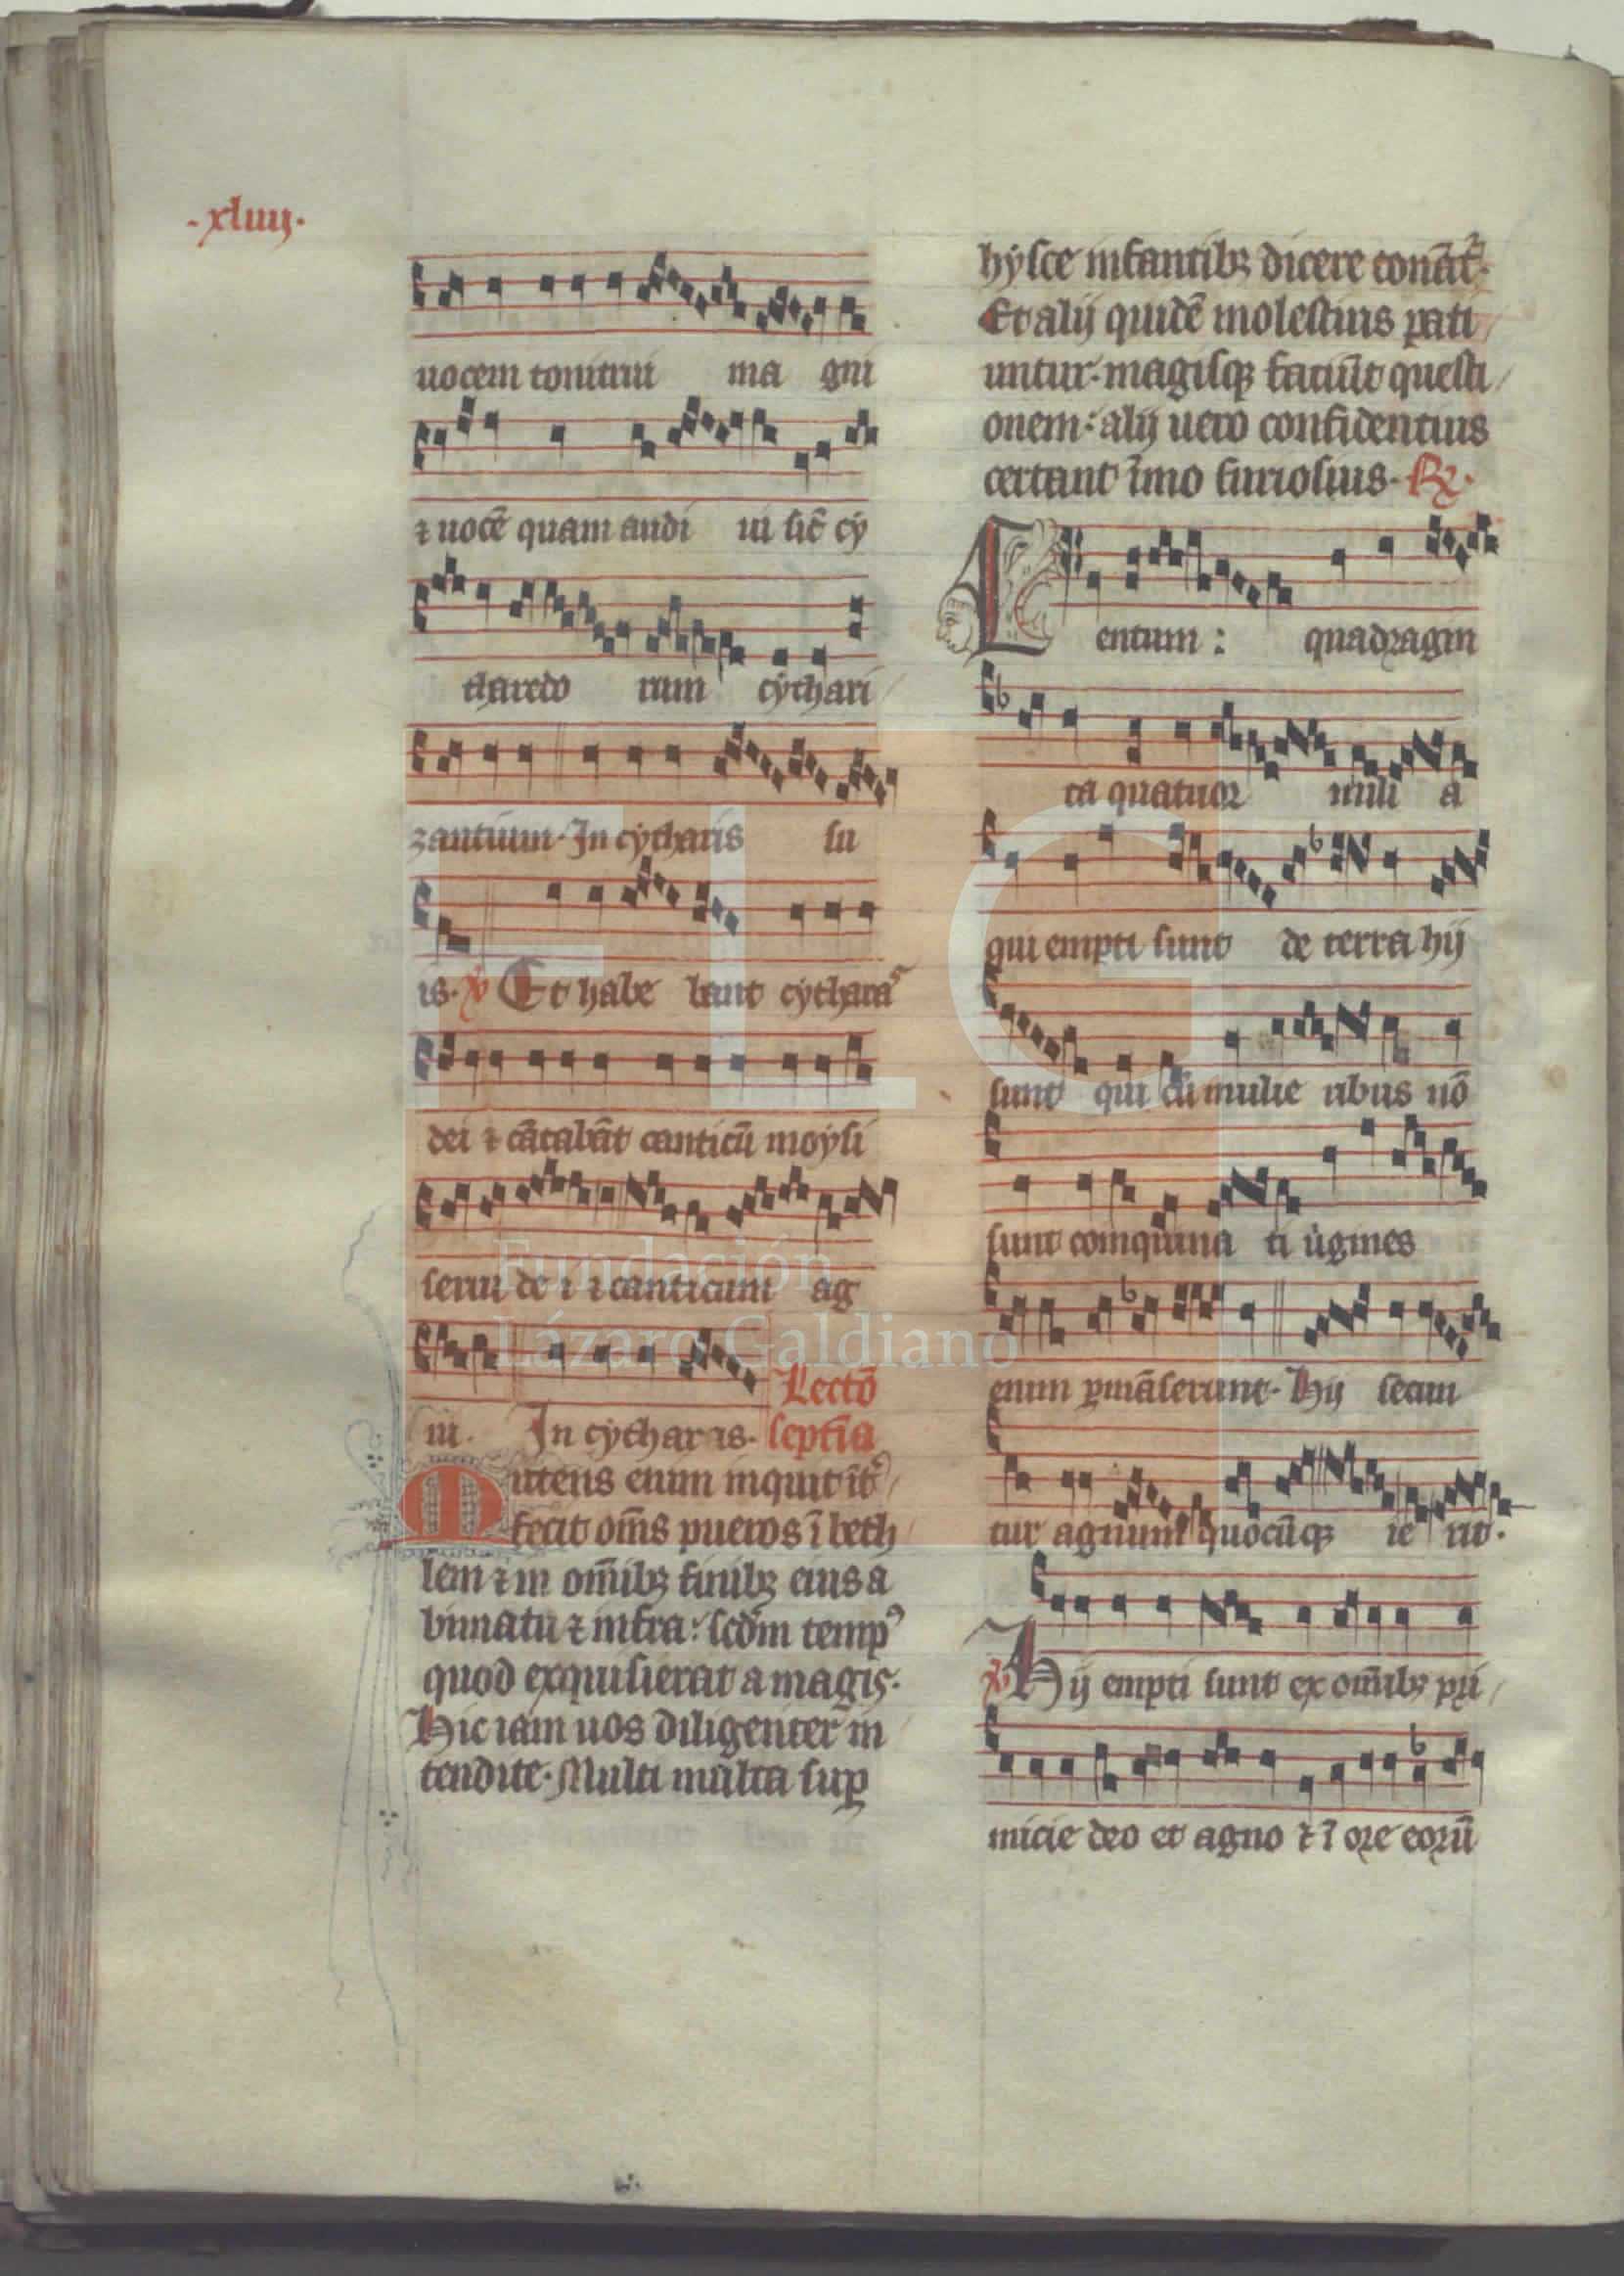 ·xliiij·
uocem tonitrui ma gni
⁊ uocē quam audi ui sic̄ cy
tharedo rum cythari
zantium· In cytharis su
is· ℣ Et habe bant cytharas
dei ⁊ cātabāt canticū moysi
serui de i ⁊ canticum ag
ni. In cythar is· Lectō
septīa
Mittens enim inquit
fecit om̄s pueros ī beth
lem ⁊ in om̄ibꝫ finibꝫ eius a
bimatu ⁊ infra: scd̄m tempꝰ
quod exquisierat a magis·
Hic iam uos diligenter in
tendite· Multi multa suꝑ
hysce infantibꝫ dicere
Et alij quidē molestius pati
untur· magisqꝫ faciūt questi
onem: alij uero confidentius
certant īmo furiosius· ℟·
Centum: quadragin
ta quatuor mili a
qui empti sunt de terra hij
sunt qui cū mulie ribus nō
sunt coinquina ti ůgines
enim ꝑmāserunt· Hij secun
tur agnum quocūqꝫ ie rit·
℣ Hij empti sunt ex om̄ibꝫ pri
micie deo et agno ⁊ ī ore eorū
Fundación
Lázaro Galdiano
FLG